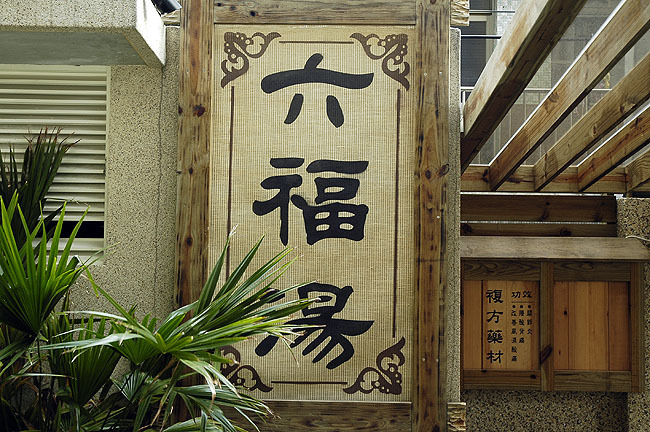 六福湯
複方藥材
功效